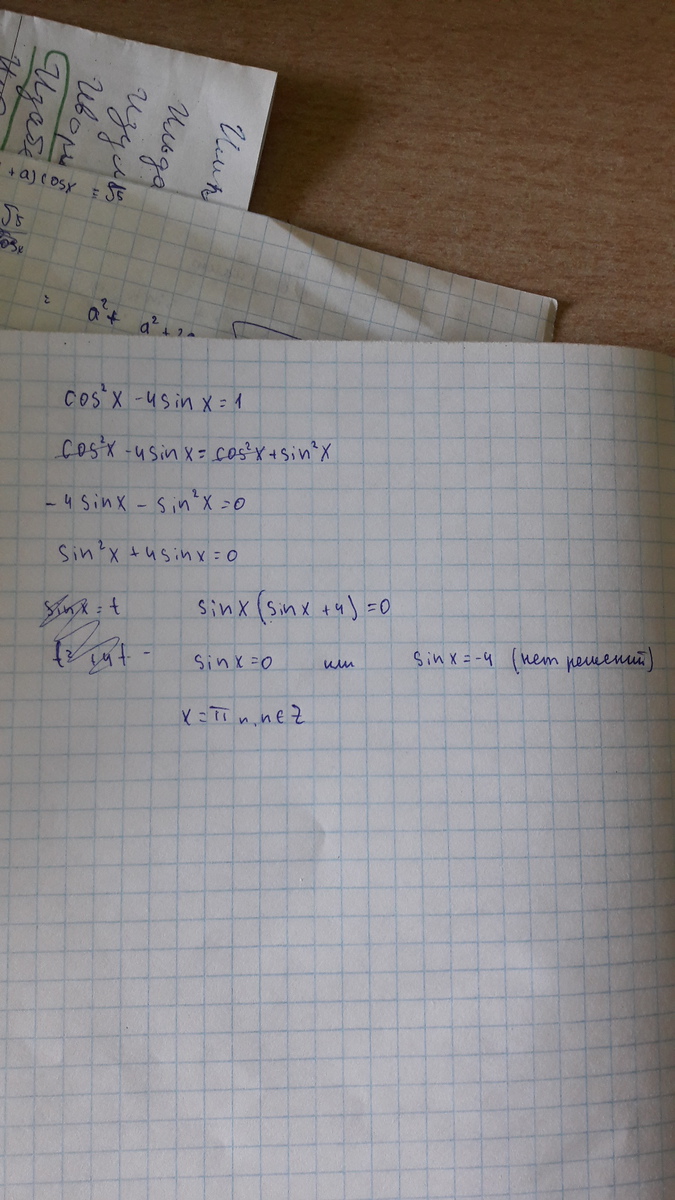 + a) cos x = √5
√5
cos x
=
a² +
a² +
cos²x - 4 sin x = 1
cos²x - 4 sin x = cos²x + sin²x
- 4 sin x - sin²x = 0
sin²x + 4 sin x = 0
sin x = t
sin x (sin x + 4) = 0
sin x = 0 или sin x = -4 (нет решений)
x = π n, n ∈ Z